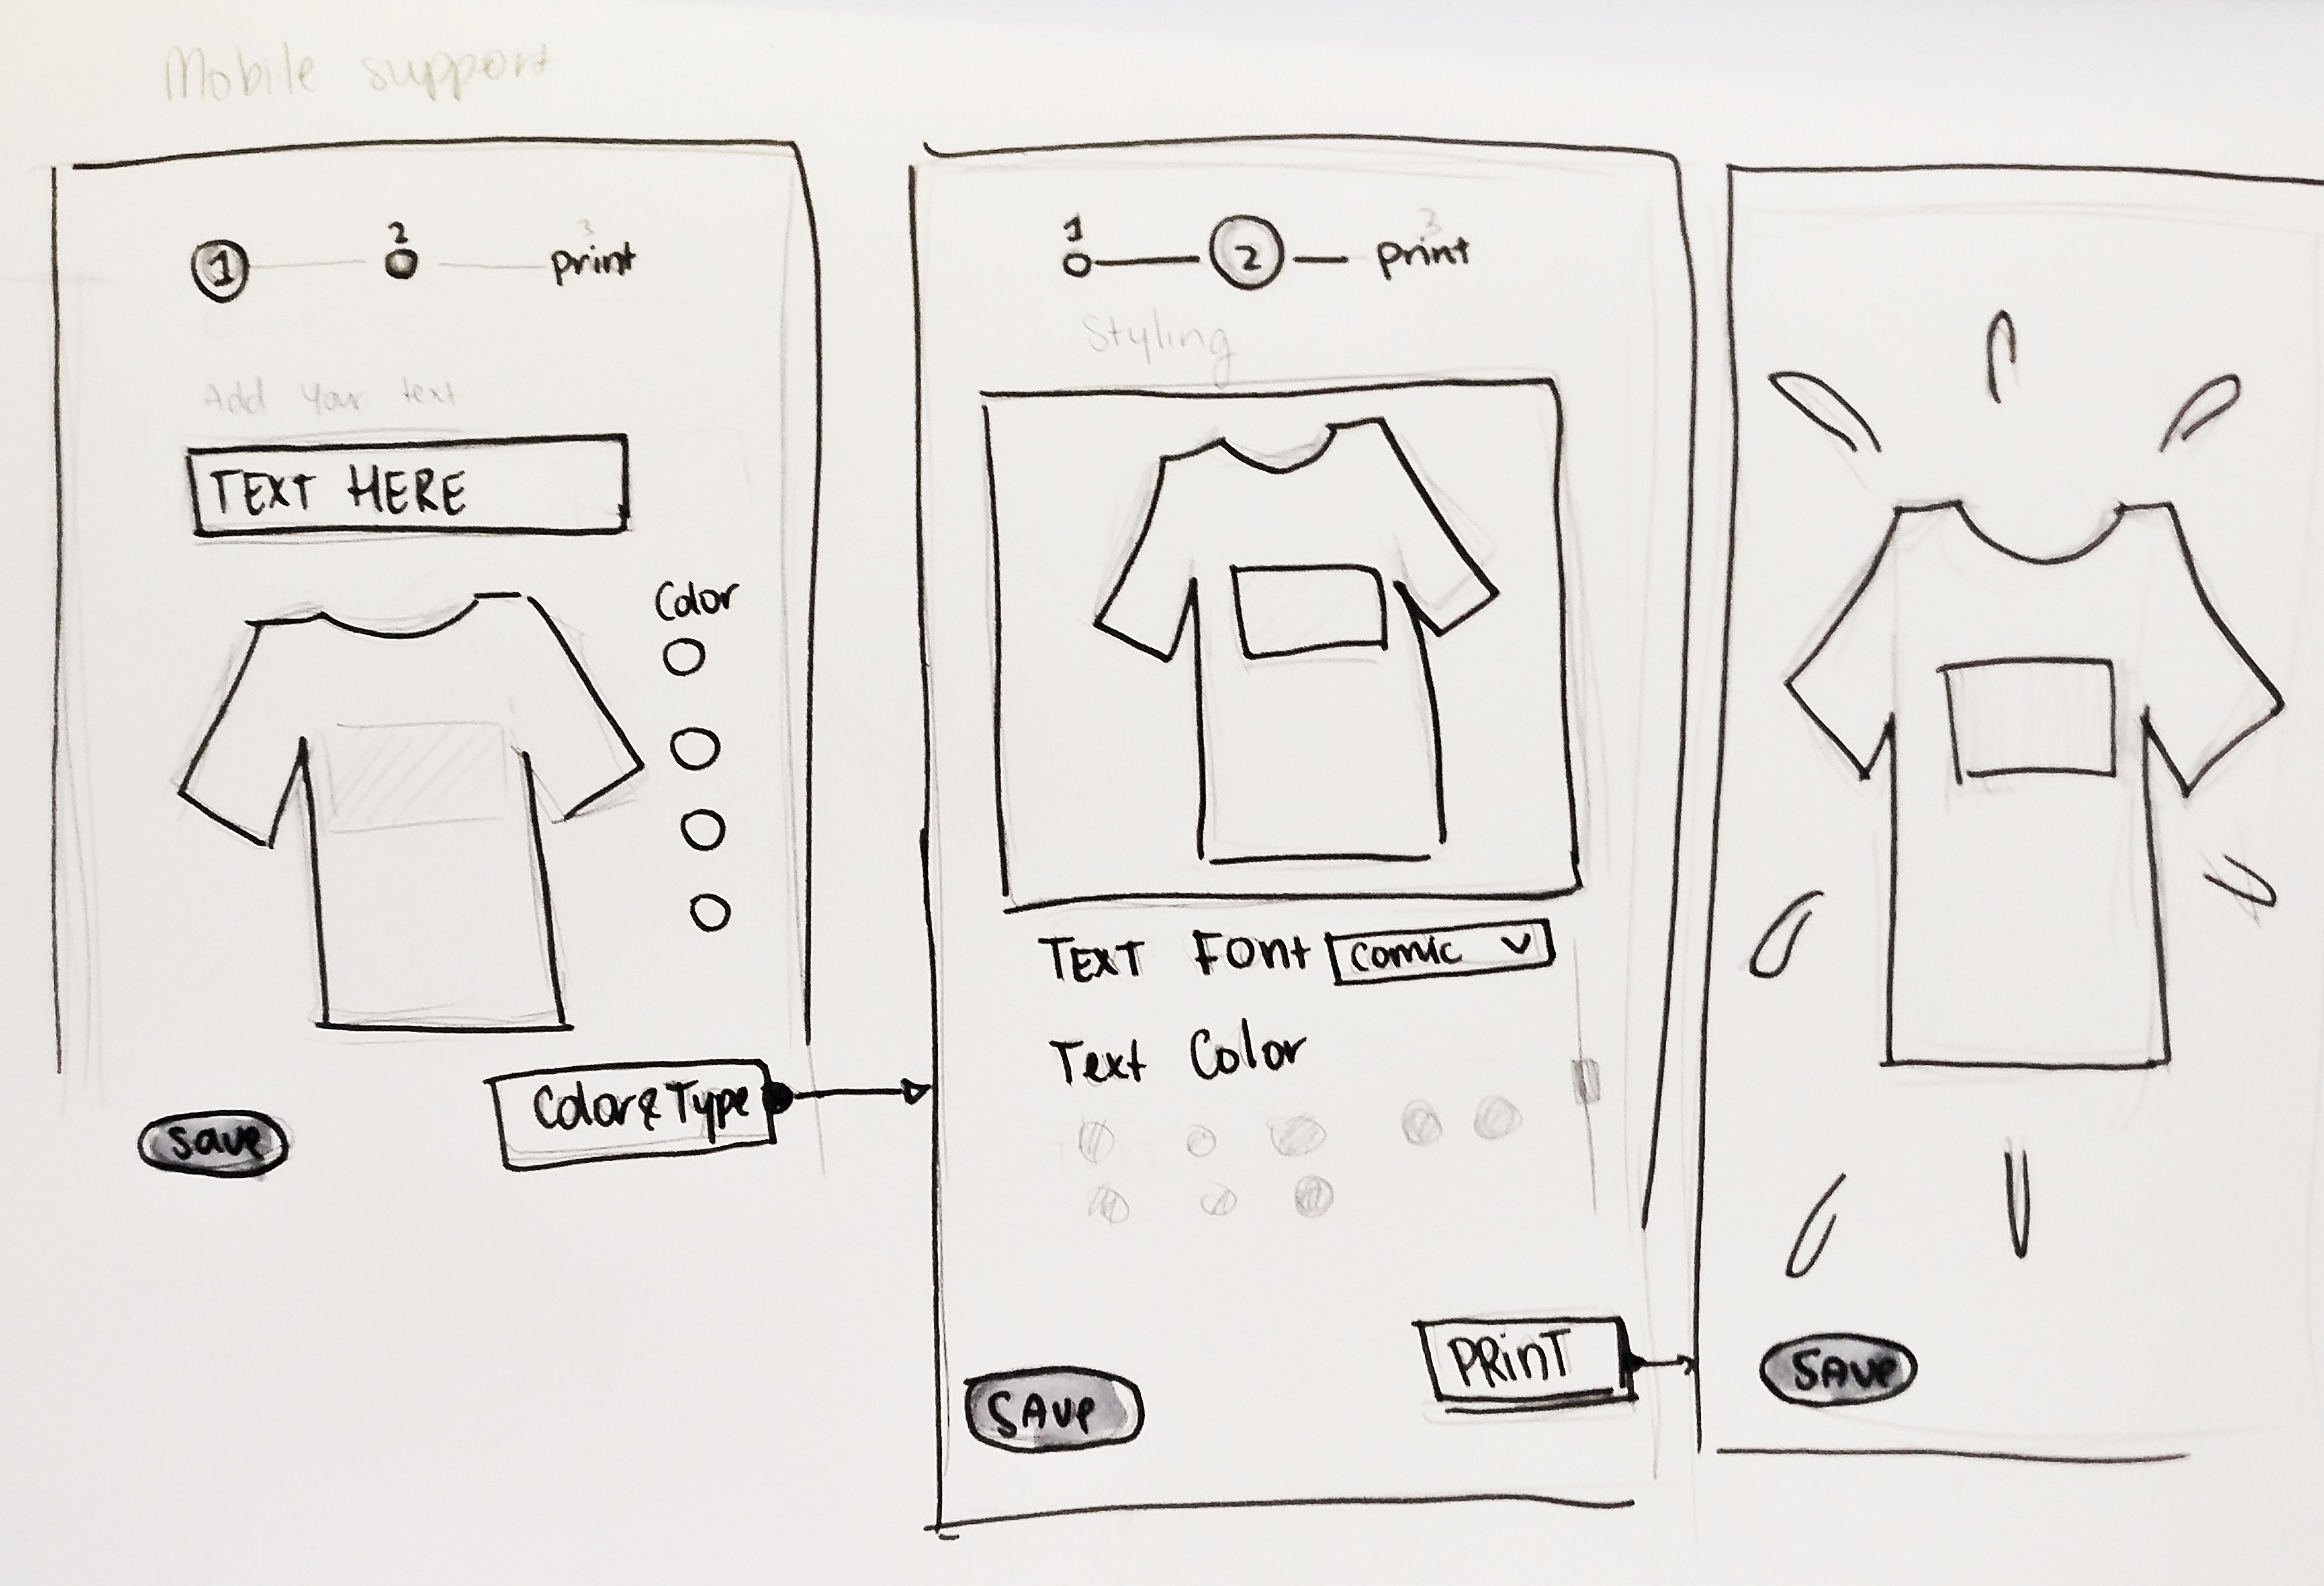 Mobile support
1
2
3
print
Add your text
TEXT HERE
Color
Color & Type
save
1
2
3
print
Styling
TEXT Font
comic
Text Color
PRinT
SAve
SAve